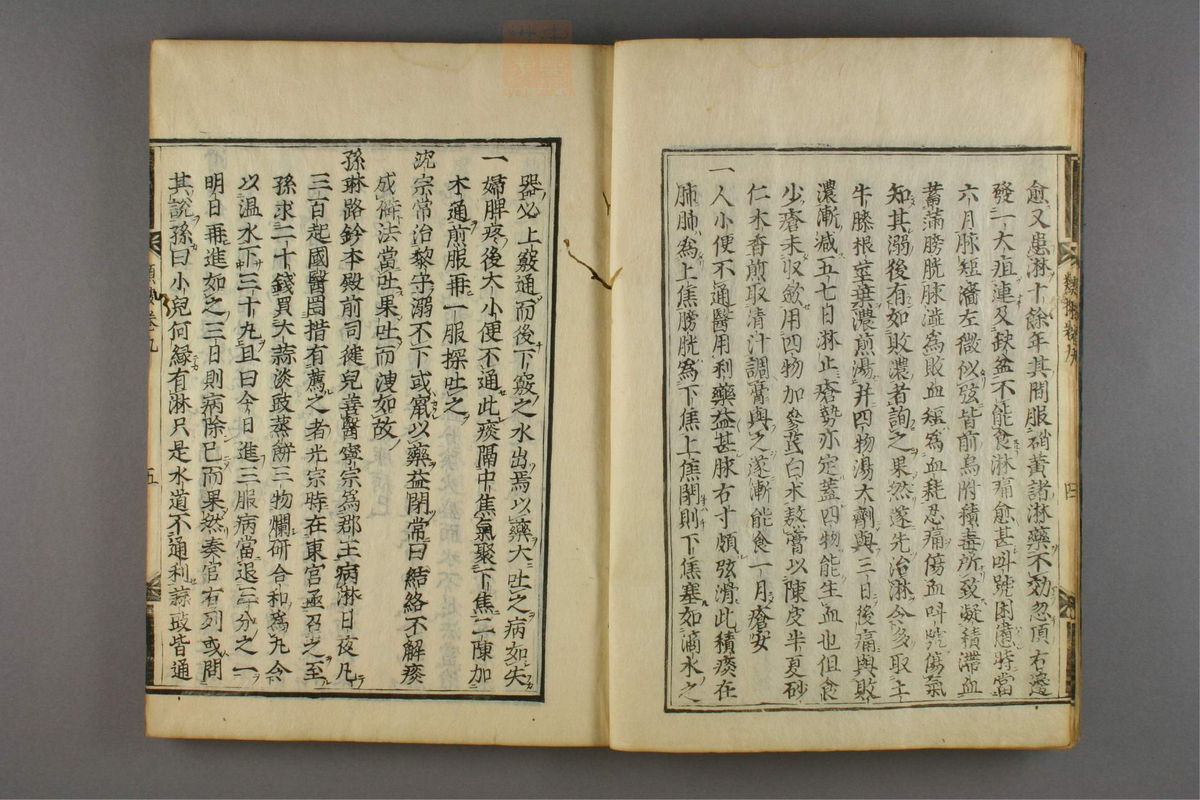 愈又患淋十餘年其間服硝黃諸淋藥不効忽頂右邊
發一大疽連及缺盆不能食淋痛愈甚叫號困憊時當
六月脉短濇左微似弦皆前烏附積毒所致凝積滯血
蓄滿膀胱脉濇為敗血短為血耗忍痛傷血叫號傷氣
知其溺後有如敗濃者詢之果然遂先治淋令多取土
牛膝根莖葉濃煎湯并四物湯大劑與三日後痛與敗
濃漸减五七日淋止瘡勢亦定蓋四物能生血也但食
少瘡未収歛用四物加參芪白朮熬膏以陳皮半夏砂
仁木香煎取清汁調膏與之遂漸能食一月瘡安
一人小便不通醫用利藥益甚脉右寸頗弦滑此積痰在
肺肺爲上焦膀胱爲下焦上焦閉則下焦塞如滴水之
類按卷九
四
器必上竅通而後下竅之水出焉以藥大吐之病如失
一婦脾疼後大小便不通此痰隔中焦氣聚下焦二陳加
木通煎服再一服探吐之
沈宗常治黎守溺不下或寘以藥益閉常曰結絡不解痰
成癖法當吐果吐而洩如故
孫琳路鈐本殿前司徤兒善醫寧宗爲郡王病淋日夜凡
三百起國醫罔措有薦之者光宗時在東宮亟召之至
孫求二十錢買大蒜淡豉蒸餅三物爛研合和爲丸令
以温水下三十丸且曰今日進三服病當退三分之一
明日再進如之三日則病除已而果然奏官右列或問
其說孫曰小兒何縁有淋只是水道不通利蒜豉皆通
五